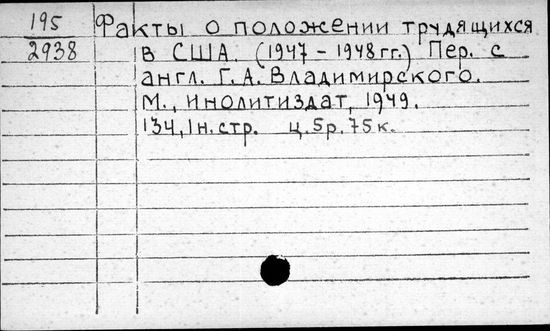 195
2938
Факты о положении трудящихся
в США. (1947 - 1948 гг.) Пер. с
англ. Г. А. Владимирского.
М., Инолитиздат, 1949.
134, 1 н. стр. ц. 5 р. 75 к.